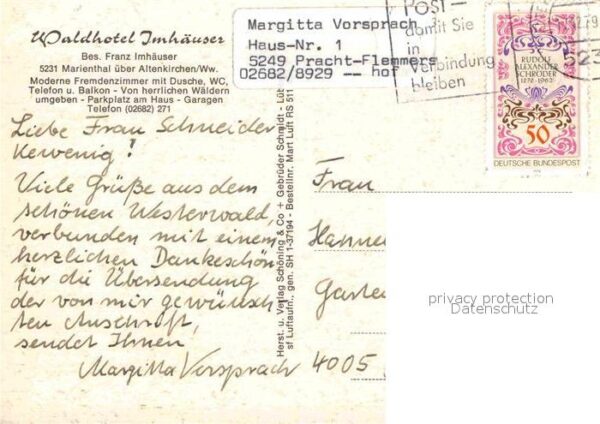 Waldhotel Imhäuser
Bes. Franz Imhäuser
5231 Marienthal über Altenkirchen/Ww.
Moderne Fremdenzimmer mit Dusche, WC,
Telefon u. Balkon - Von herrlichen Wäldern
umgeben - Parkplatz am Haus - Garagen
Telefon (02682) 271
Liebe Frau Schneider
Kewenig!
Viele Grüße aus dem
schönen Westerwald
verbunden mit einem
herzlichen Dankeschön
für die Übersendung
der von mir gewünsch
ten Anschrift,
sendet Ihnen
Margitta Vorsprach
Herst. u. Verlag Schöning & Co + Gebrüder Schmidt - Lüb
sf Luftaufn., gen. SH 1-37194 - Bestellnr. Mart Luft RS 511
Margitta Vorsprach
Haus-Nr. 1
5249 Pracht-Flemmers
02682/8929 -- hof
POST-
damit Sie
in
Verbindung
bleiben
RUDOLF
ALEXANDER
SCHRÖDER
1878-1962
50
DEUTSCHE BUNDESPOST
523
Frau
Hanne
Garten
4005
privacy protection
Datenschutz